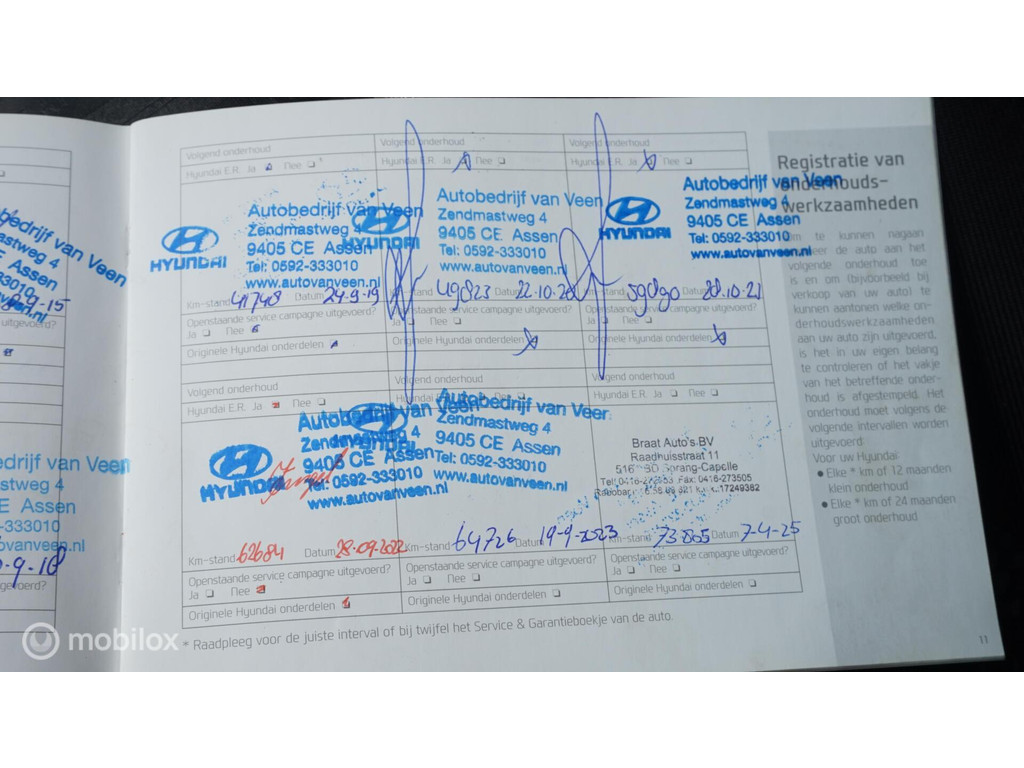 Volgend onderhoud
Hyundai E.R. Ja Nee
Autobedrijf van Veen
Zendmastweg 4
9405 CE Assen
Tel: 0592-333010
www.autovanveen.nl
HYUNDAI
Km-stand 41748 Datum 24.9.19
Openstaande service campagne uitgevoerd?
Ja Nee
Originele Hyundai onderdelen
Volgend onderhoud
Hyundai E.R. Ja Nee
Autobedrijf van Veen
Zendmastweg 4
9405 CE Assen
Tel: 0592-333010
www.autovanveen.nl
HYUNDAI
Datum 22.10.20
Openstaande service campagne uitgevoerd?
Ja Nee
Originele Hyundai onderdelen
Volgend onderhoud
Hyundai E.R. Ja Nee
Autobedrijf van Veen
Zendmastweg 4
9405 CE Assen
Tel: 0592-333010
www.autovanveen.nl
HYUNDAI
Km-stand Datum 28.10.21
Openstaande service campagne uitgevoerd?
Ja Nee
Originele Hyundai onderdelen
Volgend onderhoud
Hyundai E.R. Ja Nee
Autobedrijf van Veen
Zendmastweg 4
9405 CE Assen
Tel: 0592-333010
www.autovanveen.nl
HYUNDAI
Km-stand 62684 Datum 28.09.2022
Openstaande service campagne uitgevoerd?
Ja Nee
Originele Hyundai onderdelen
Volgend onderhoud
Hyundai E.R. Ja Nee
Autobedrijf van Veen
Zendmastweg 4
9405 CE Assen
Tel: 0592-333010
www.autovanveen.nl
Km-stand 64726 Datum 19-9-2023
Openstaande service campagne uitgevoerd?
Ja Nee
Originele Hyundai onderdelen
Volgend onderhoud
Hyundai E.R. Ja Nee
Braat Auto's BV
Raadhuisstraat 11
Sprang-Capelle
Fax: 0416-273505
Km-stand 73805 Datum 7-4-25
Openstaande service campagne uitgevoerd?
Ja Nee
Originele Hyundai onderdelen
* Raadpleeg voor de juiste interval of bij twijfel het Service & Garantieboekje van de auto.
Registratie van
onderhouds-
werkzaamheden
Om te kunnen nagaan
wanneer de auto aan het
volgende onderhoud toe
is en om (bijvoorbeeld bij
verkoop van uw auto) te
kunnen aantonen welke on-
derhoudswerkzaamheden
aan uw auto zijn uitgevoerd,
is het in uw eigen belang
te controleren of het vakje
van het betreffende onder-
houd is afgestempeld. Het
onderhoud moet volgens de
volgende intervallen worden
uitgevoerd:
Voor uw Hyundai
• Elke * km of 12 maanden
klein onderhoud
• Elke * km of 24 maanden
groot onderhoud
11
mobilox